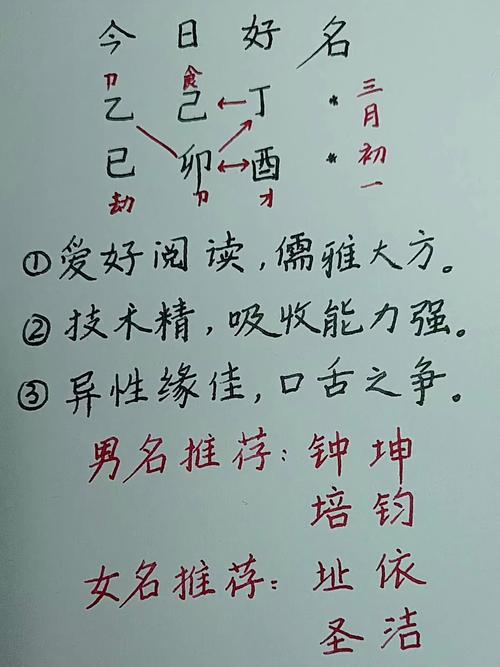 今日好名
卩 食
乙 己 ← 丁 *
巳 卯 ↔ 酉 *
劫 卩 才
三月初一
①爱好阅读,儒雅大方。
②技术精,吸收能力强。
③异性缘佳,口舌之争。
男名推荐:钟坤
培钧
女名推荐:址依
圣洁